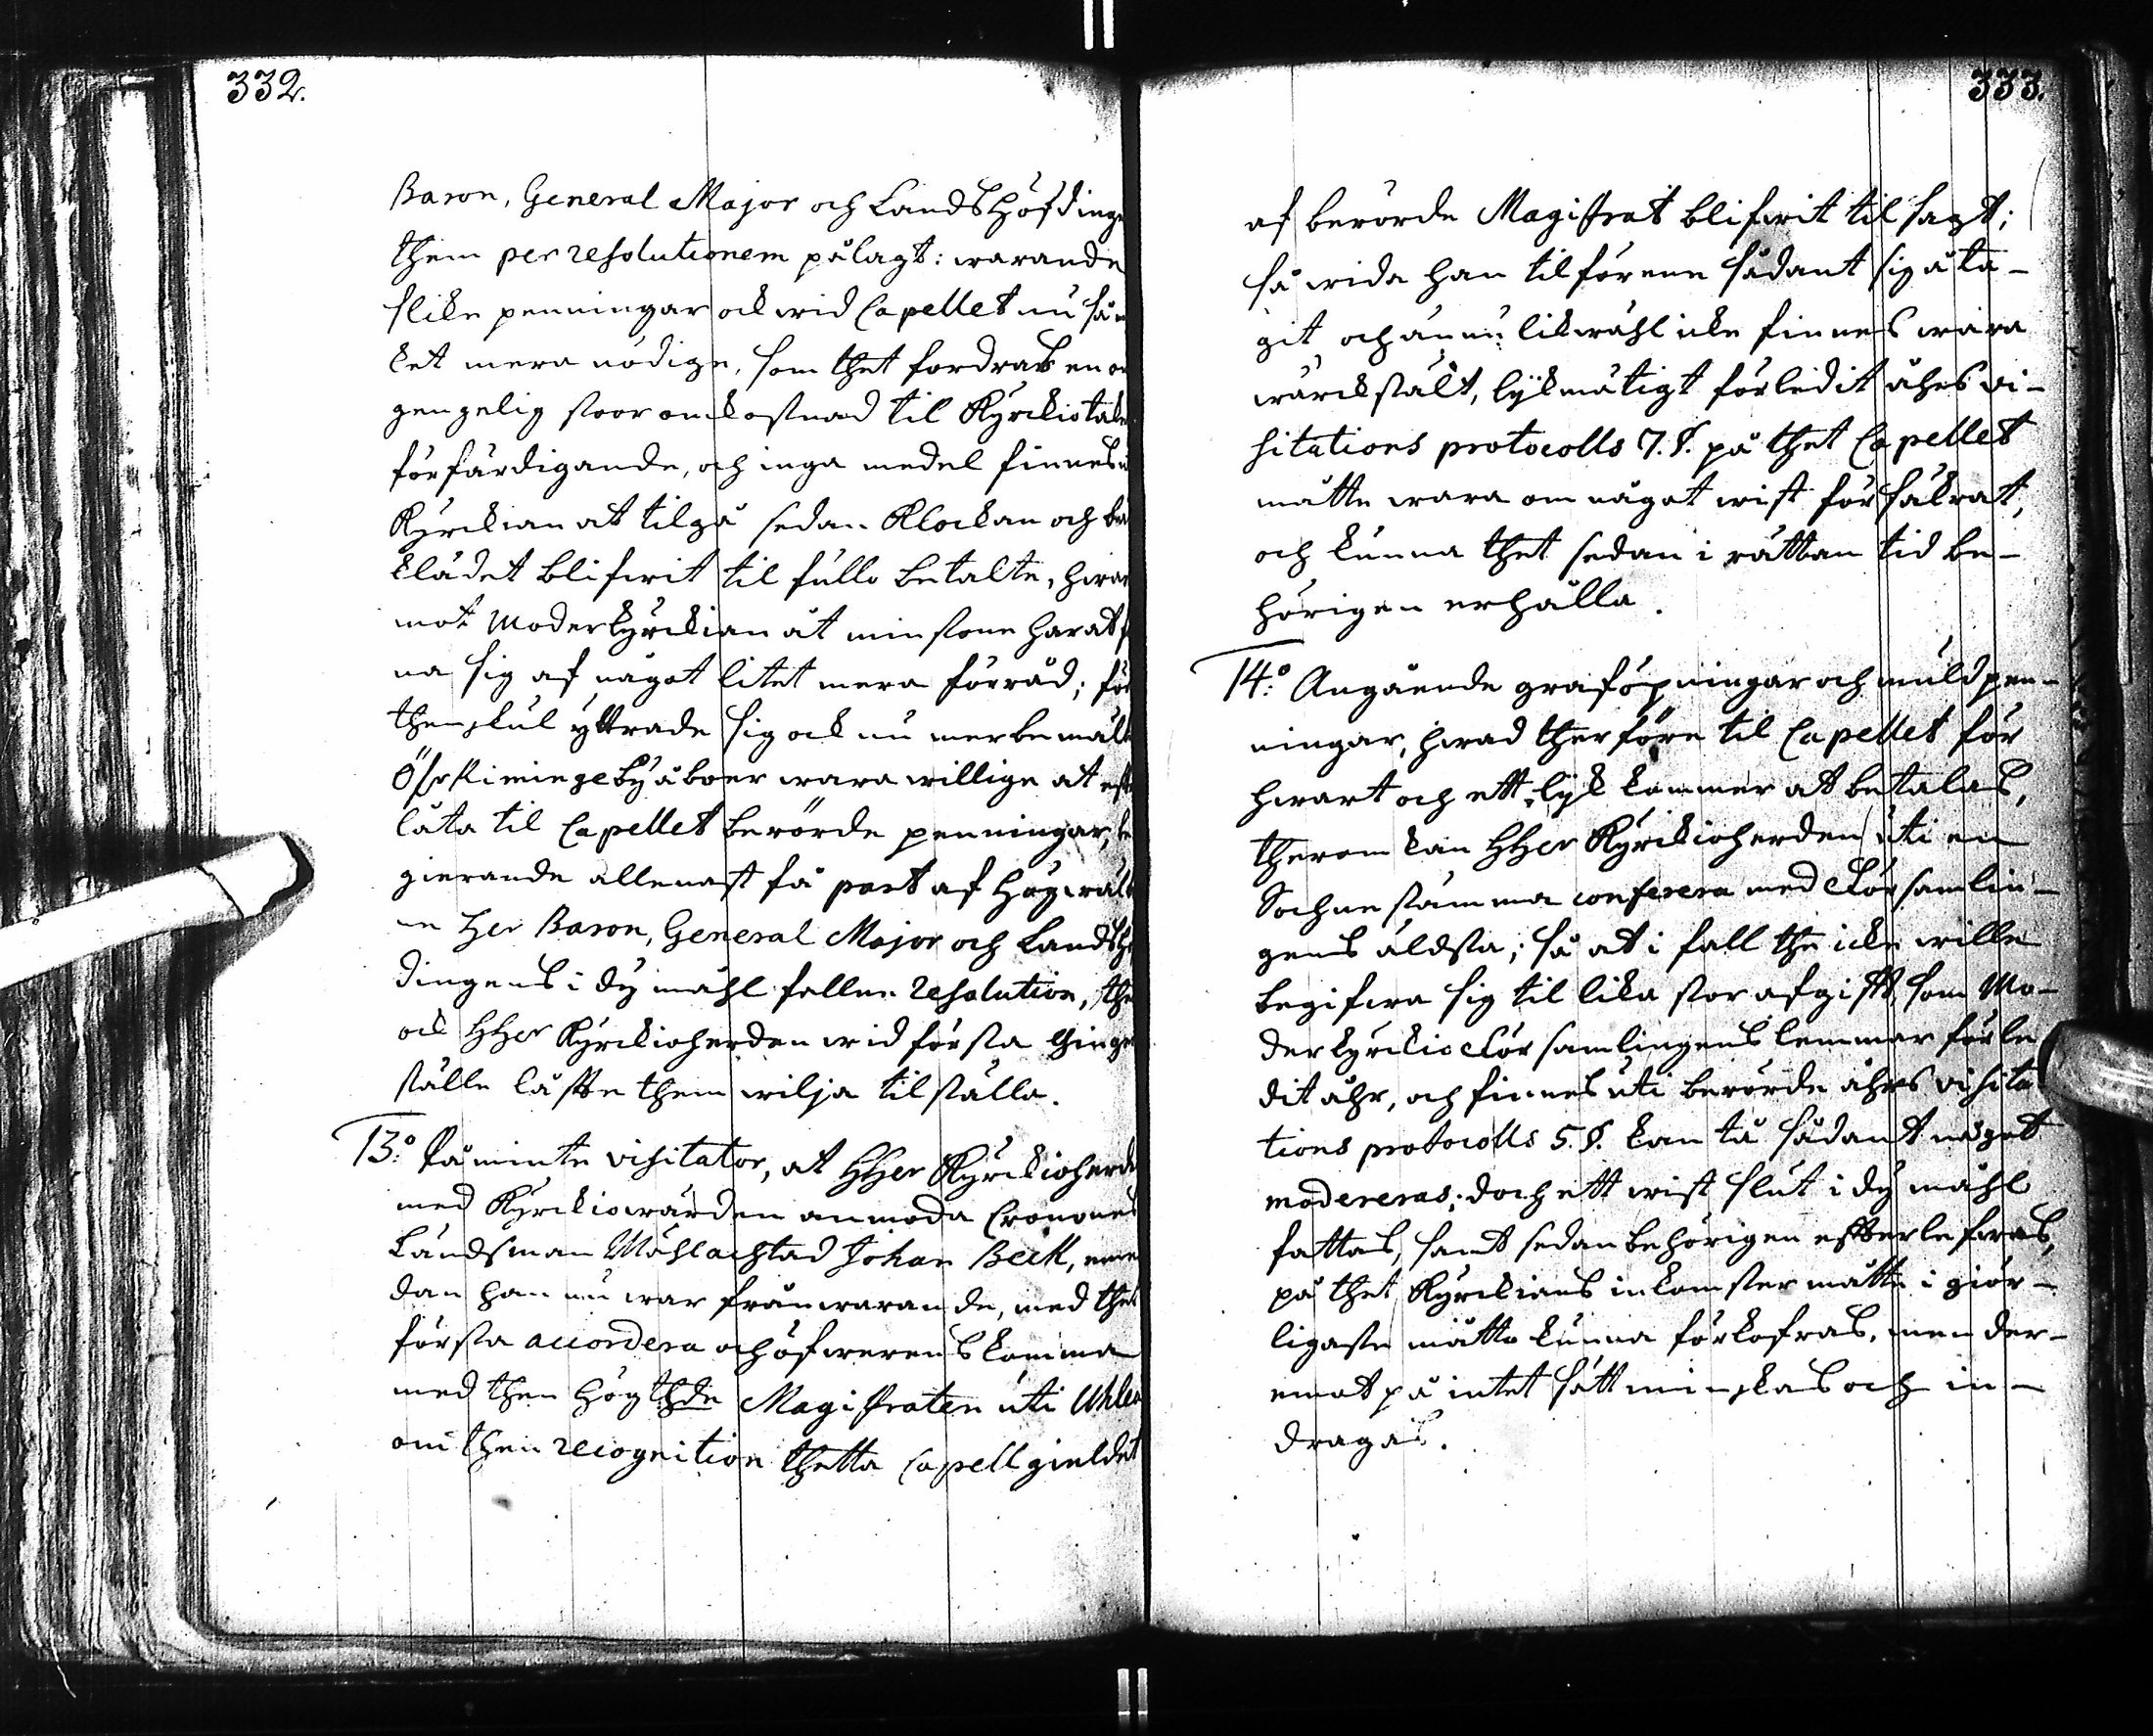 332.
Baron, General Major och Landshöfdinge
them per resolutionem pålagt: warande
slike penningar ock wid Capellet nu så
ket mera nödige, som thet fordras en
gengelig stoor omkostnad til Kyrkiotak
förfärdigande, och inga medel finnes
Kyrckian at tilgå sedan Klockan och
klädet blifwit til fullo betalte, hwar
mot Moderkyrckian åt minstone har at
na sig af något litet mera förråd; för
then skul yttrade sig ock nu merbemält
Öfwr Kiminge byåboer wara willige at eft
låta til Capellet berörde penningar,
gierande allenast få part af Högwäl
n Her Baron, General Major och Landsh
dingens i dy måhl fallne resolution, the
ock HHer Kyrckioherden wid första Ginge
ställe låfte them wilja tilställa.
13:o Påminte visitator, at HHer Kyrckioherd
med Kyrckiowärden anmoda Cronones
Landsman Wählachtad Johan Beck, eme
dan han nu war frånwarande, med thet
första accordera och öfwerens komma
med then Högthde Magistraten uti Uhleo
om then recognition thetta Capellgieldet
333.
af berörde Magistrat blifwit til sagt;
så wida han tilförene sådant sig åta-
git och ännu likwähl icke finnes wara
wärckstält, lykmätigt förledit åhrs vi-
sitations protocolls 7. §. på thet Capellet
måtte wara om något wist försäkrat,
och kunna thet sedan i rättan tid be-
hörigen erhålla.
14:o Angående graföpningar och muldpen-
ningar, hwad therföre til Capellet för
hwart och ett lyk kommer at betalas,
therom kan HHer Kyrckioherden uti en
Sochnestämma conferera med Församlin-
gens äldsta; så at i fall the icke wille
begifwa sig til lika stor afgift, som Mo-
derkyrckio Församlingens lemmar förle
dit åhr, och finnes uti berörde åhrs visita
tions protocolls 5. §. kan tå sådant något
modereras; doch ett wist slut i dy måhl
fattas, samt sedan behörigen efterlefwas,
på thet Kyrckians inkomster måtte i giör-
ligaste måtto kunna förkofras, men der-
emot på intet sätt minskas och in-
dragas.